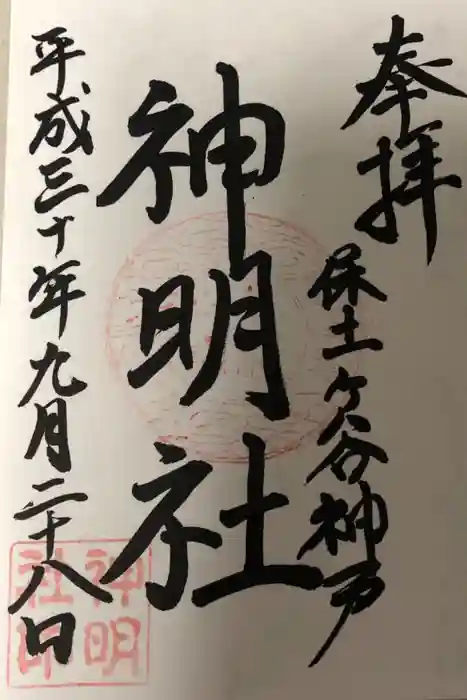 奉拝
保土ケ谷神戸
神明社
平成三十年九月二十八日
神明
社印